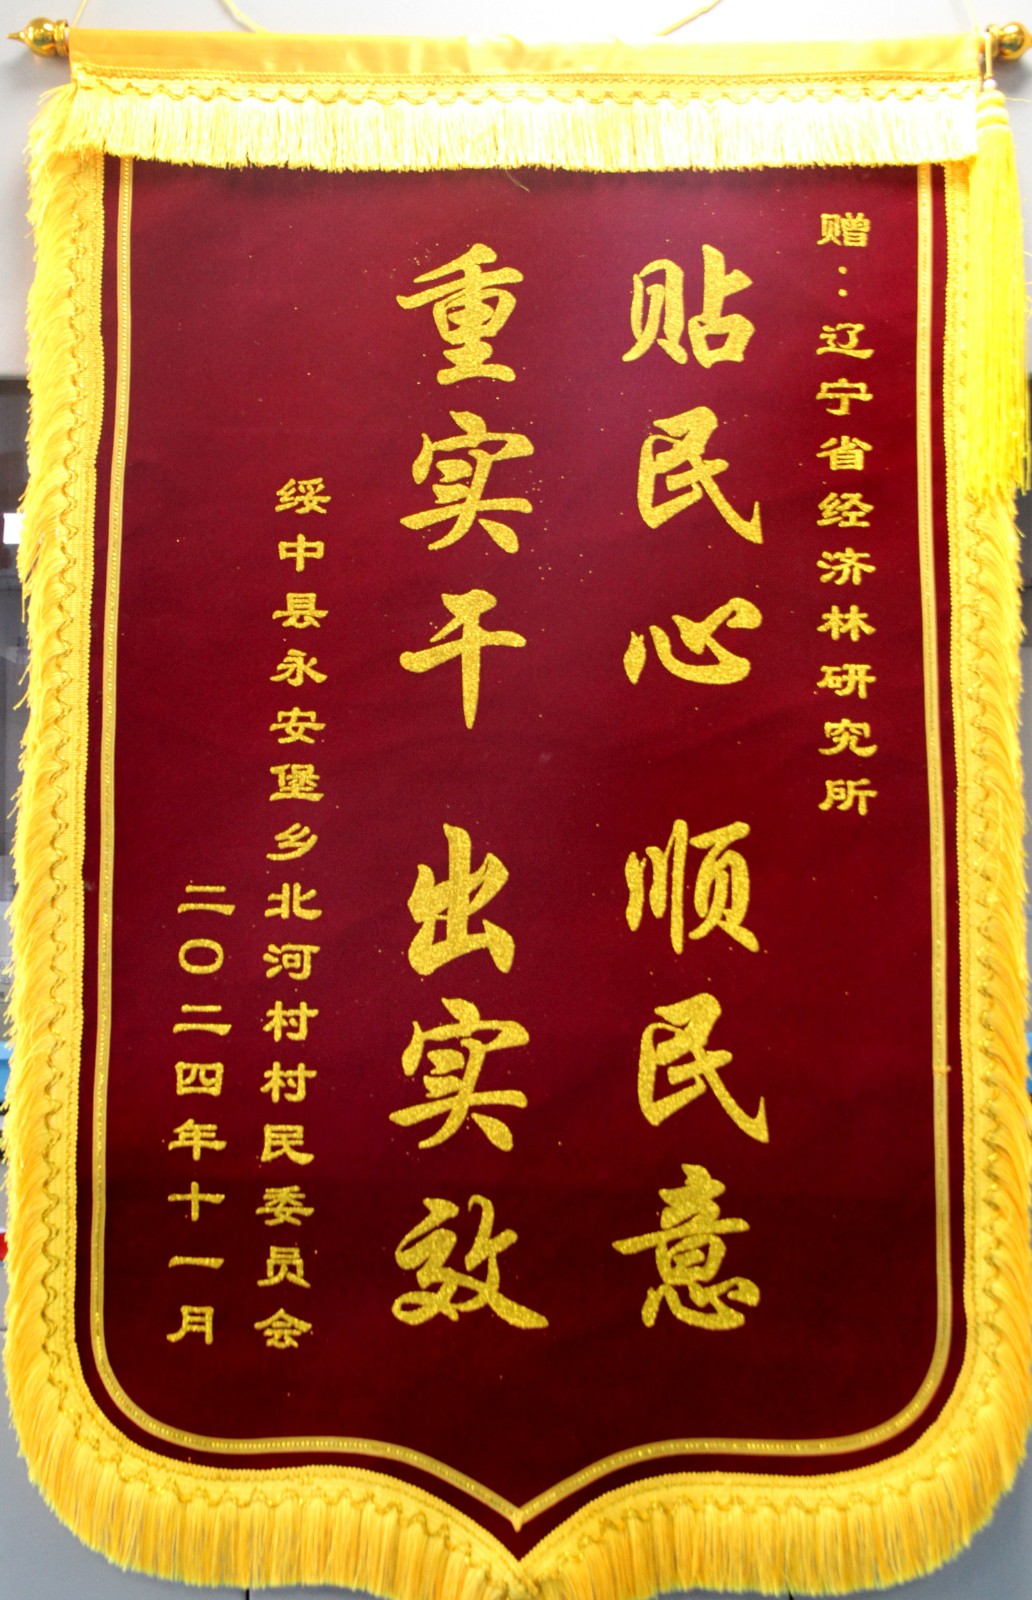 赠：辽宁省经济林研究所
贴民心 顺民意
重实干 出实效
绥中县永安堡乡北河村村民委员会
二〇二四年十一月